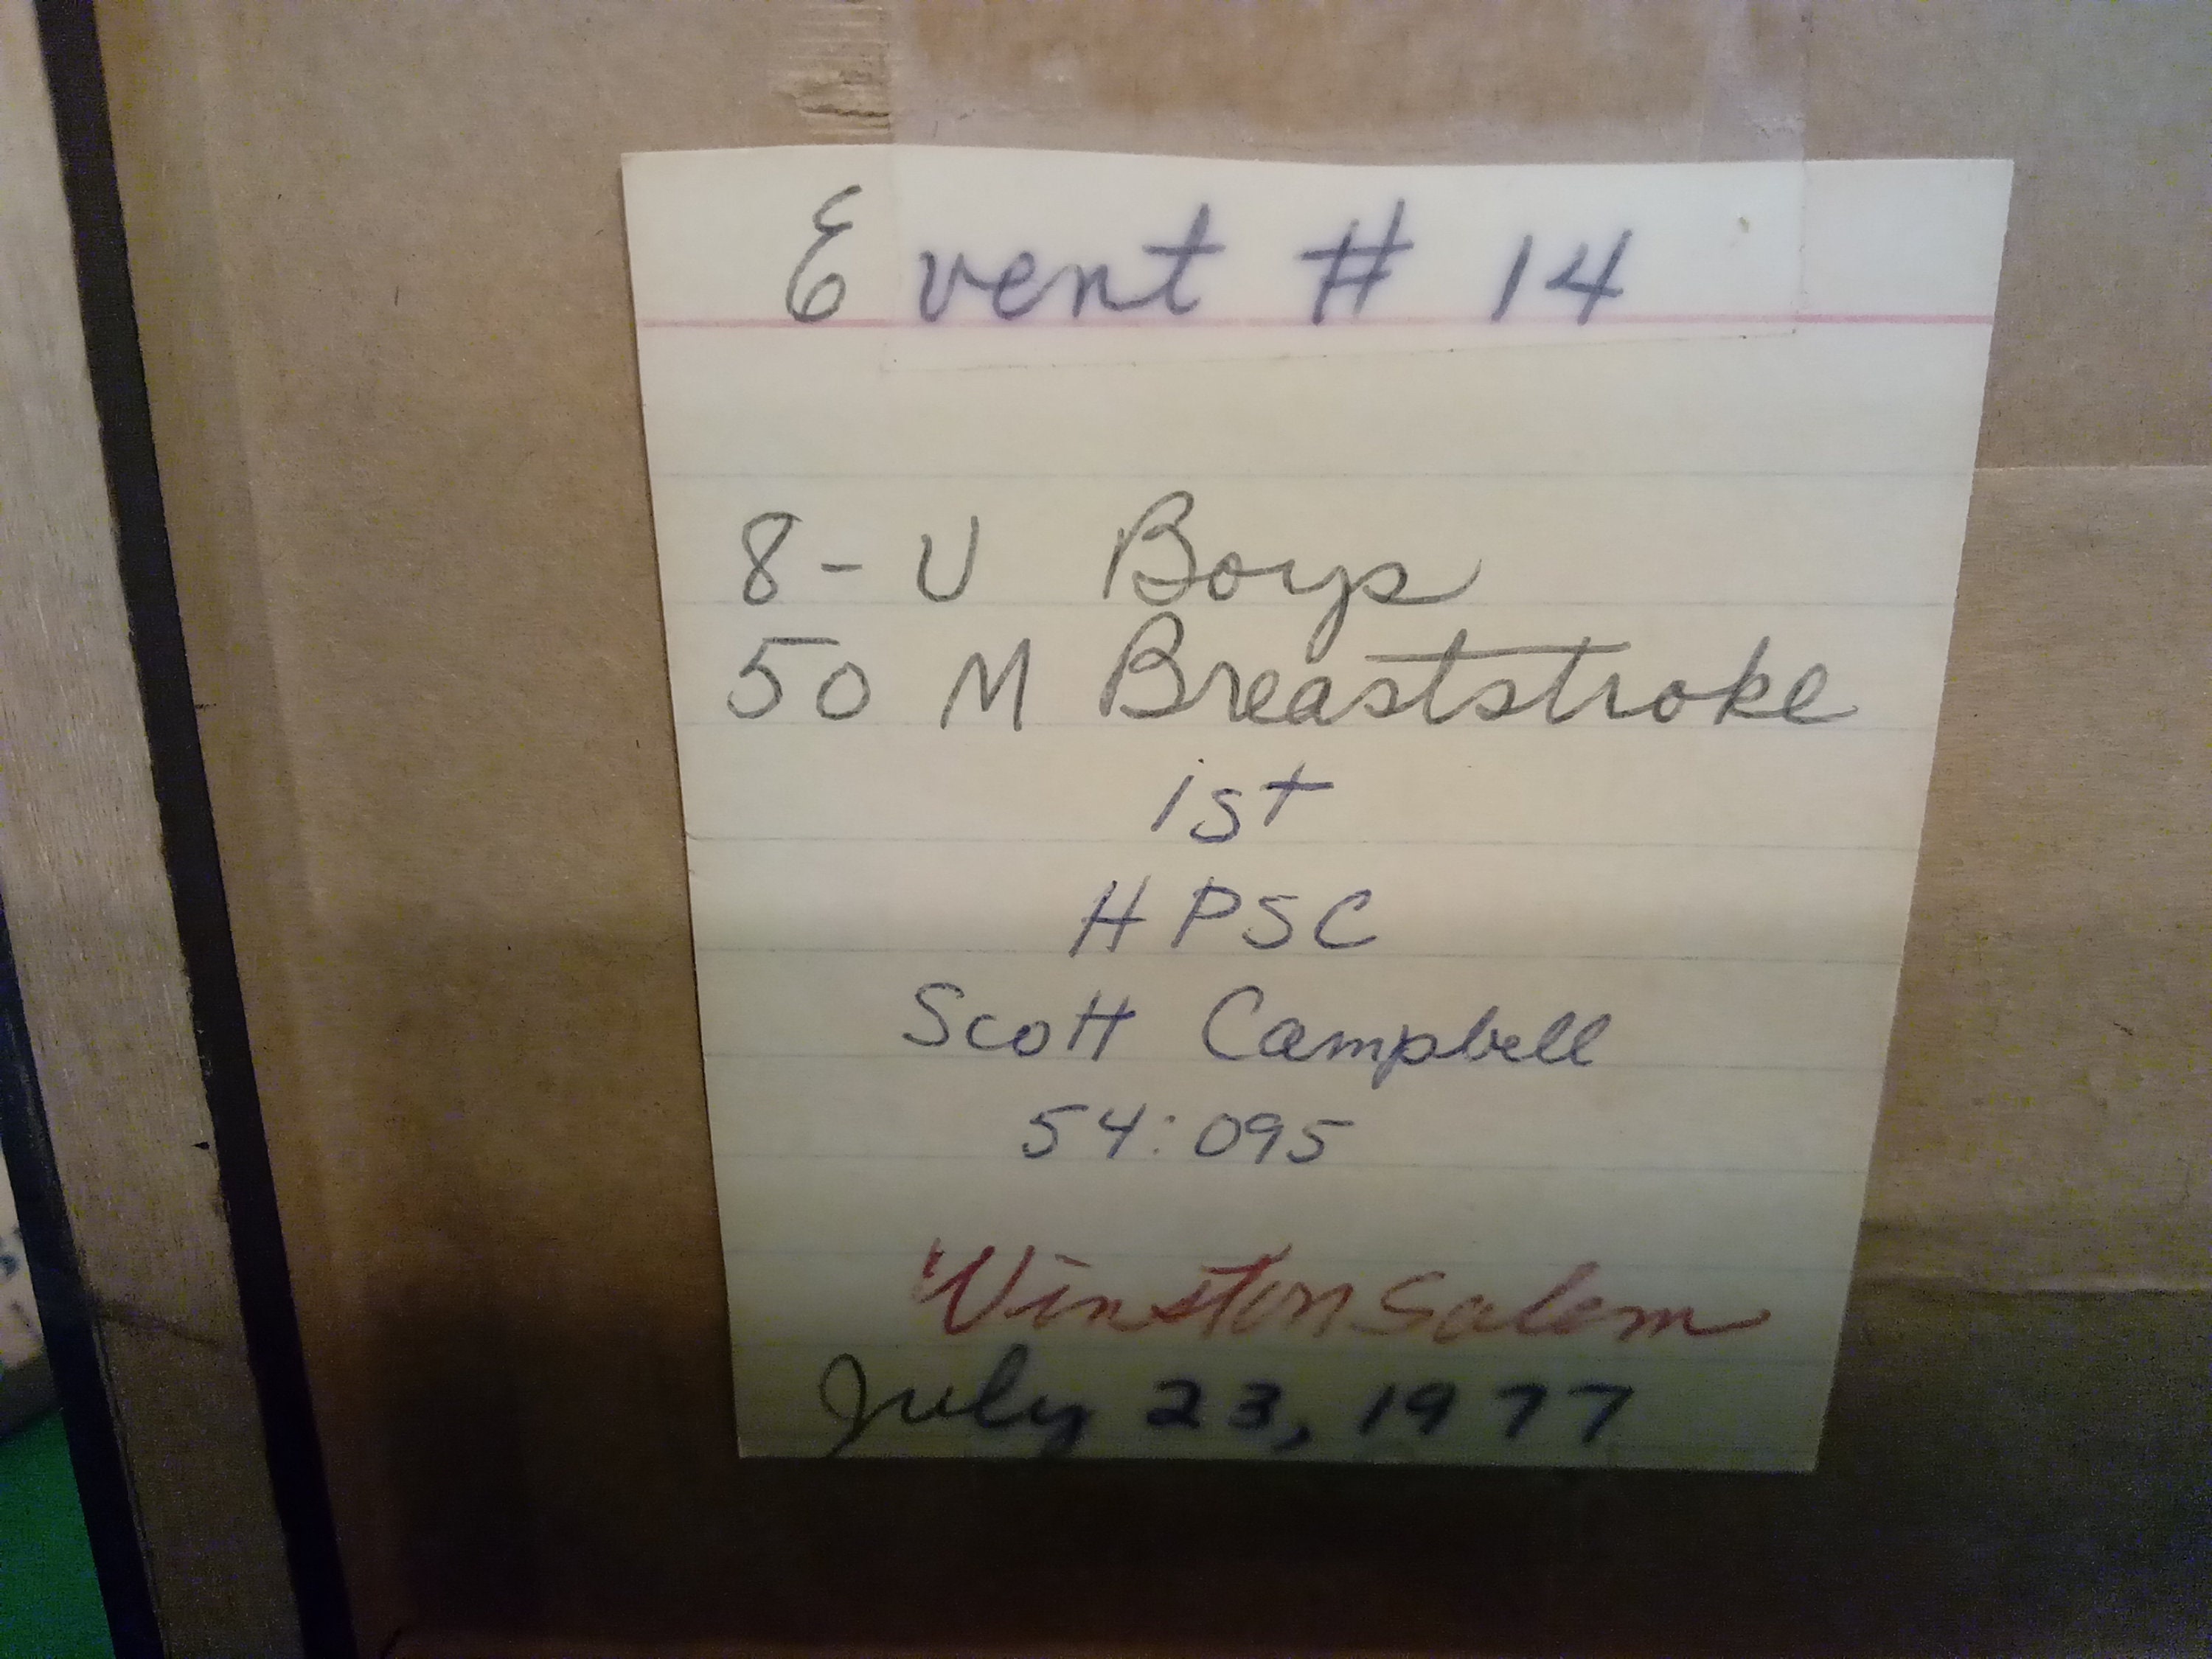 Event # 14
8-U Boys
50 M Breaststroke
1st
HPSC
Scott Campbell
54:095
Winston Salem
July 23, 1977